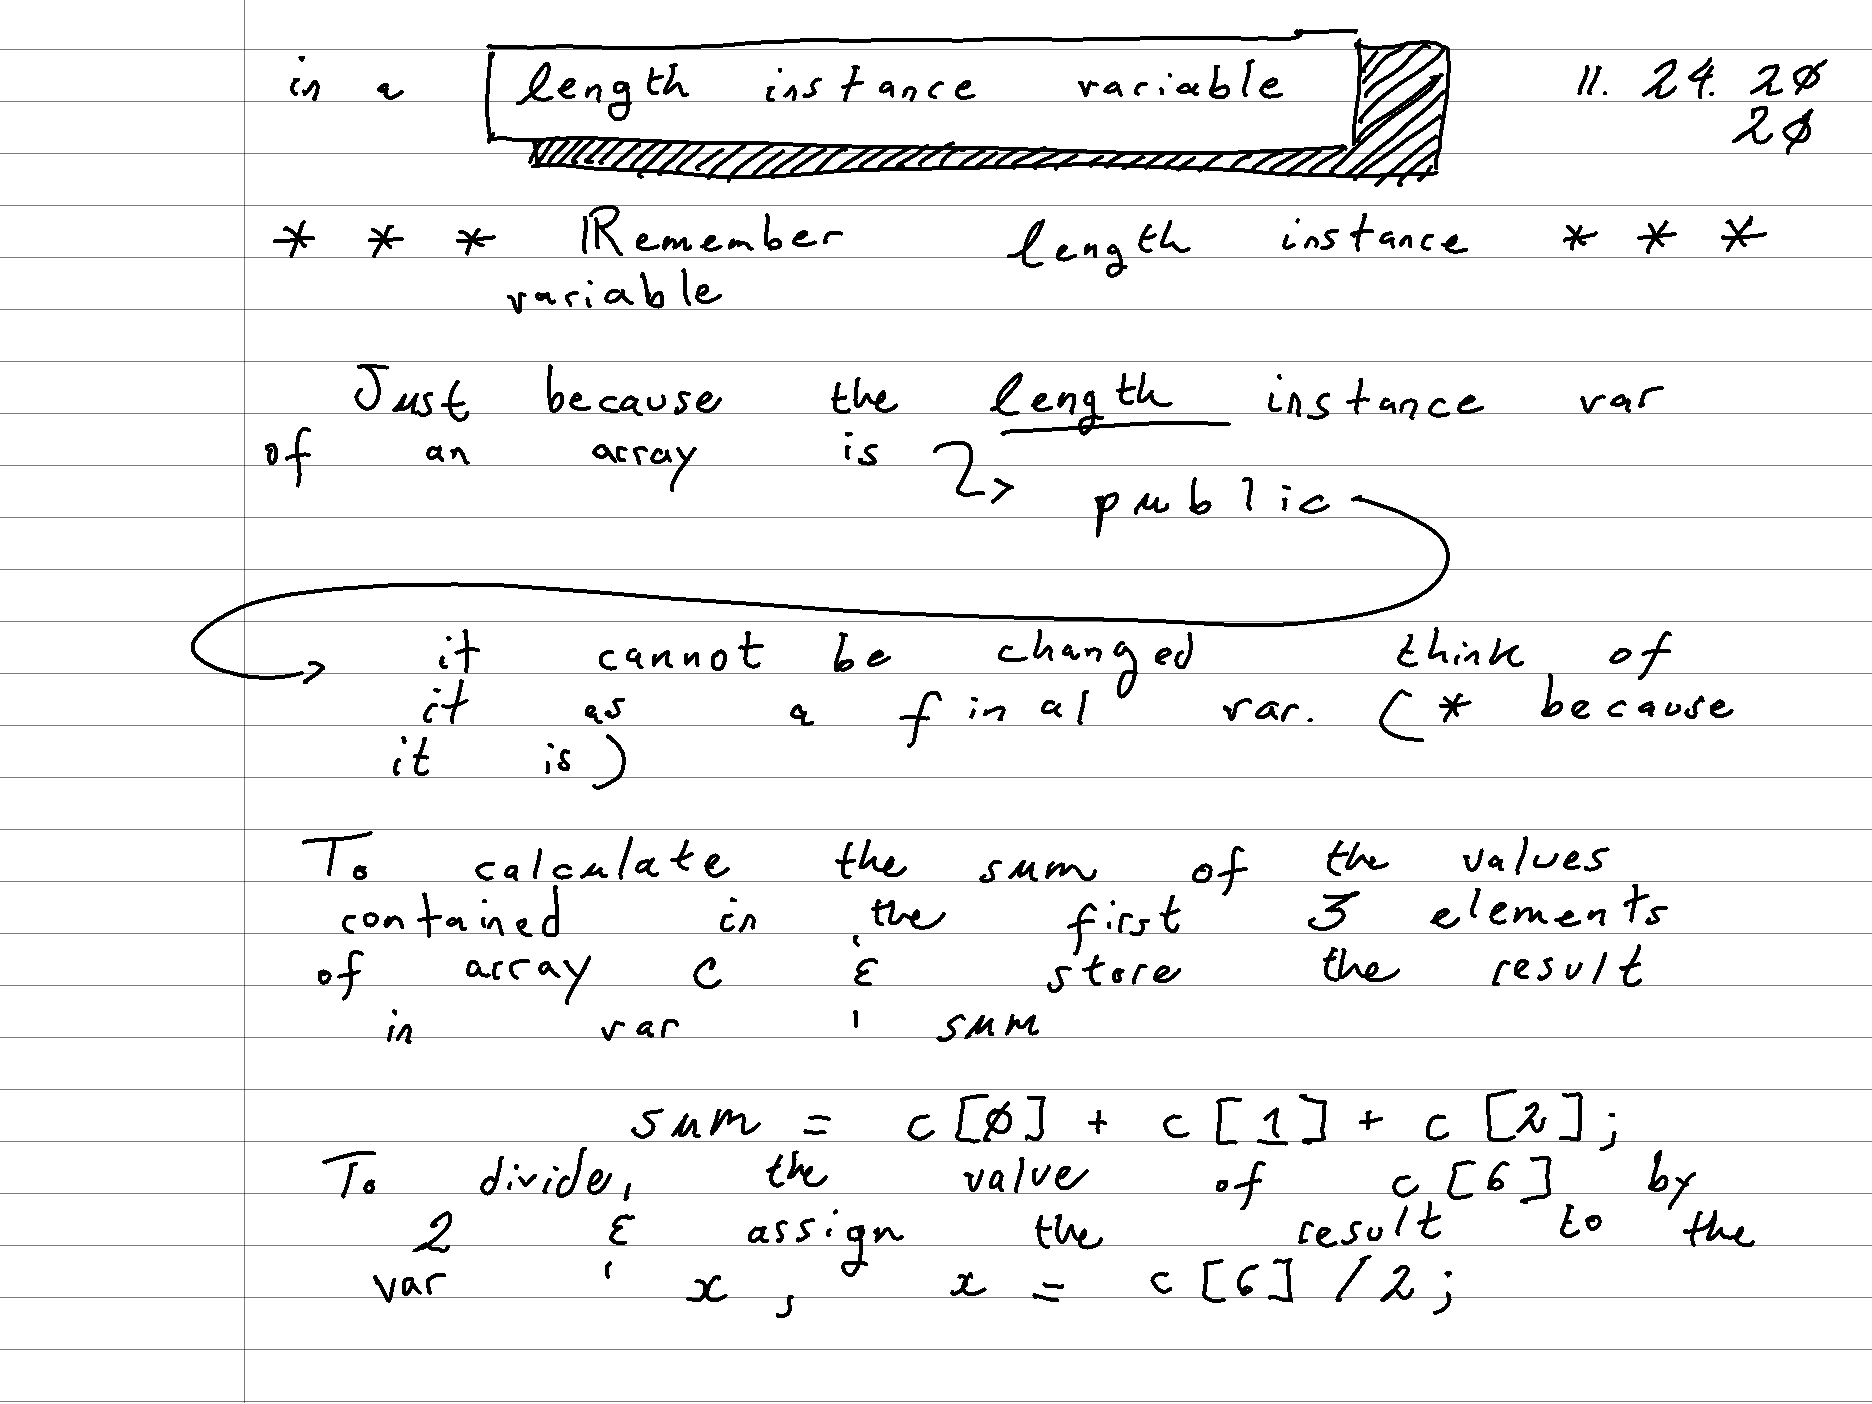 in a length instance variable 11. 24. 20
20
* * * Remember length instance * * *
variable
Just because the length instance var
of an array is
public
it cannot be changed think of
it as a final var. (* because
it is)
To calculate the sum of the values
contained in the first 3 elements
of array c & store the result
in var sum
sum = c[0] + c[1] + c[2];
To divide, the value of c[6] by
2 & assign the result to the
var x, x = c[6] / 2;